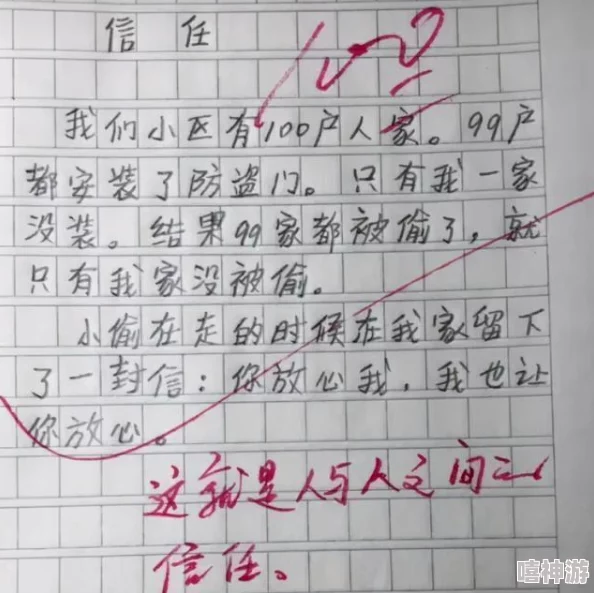 信任
我们小区有100户人家。99户
都安装了防盗门。只有我一家
没装。结果99家都被偷了，就
只有我家没被偷。
小偷在走的时候在我家留下
了一封信：你放心我，我也让
你放心。
这就是人与人之间
信任。
嘻神游